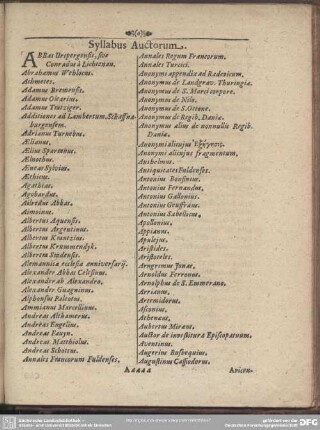 Syllabus Auctorum.
ABbas Urspergensis, sive
Conradus à Lichtenau.
Abrahamus Weblacus.
Achmetes.
Adamus Bremensis.
Adamus Olearius.
Adamus Tratziger.
Additiones ad Lambertum, Schaffna-
burgensem.
Adrianus Turnebus.
Ælianus.
Ælius Sparcianus.
Ælnothus.
Æneas Sylvius.
Æthicus.
Agathias.
Agobardus.
Ailredus Abbas.
Aimoinus.
Albertus Aquensis.
Albertus Argentinus.
Albertus Krantzius.
Albertus Krummendyk.
Albertus Stadensis.
Alemannica ecclesiæ anniversarii.
Alexander Abbas Celesinus.
Alexander ab Alexandro.
Alexander Guagninus.
Alphonsus Paleotus.
Ammianus Marcellinus.
Andreas Althamerus.
Andreas Engelius.
Andreas Favyn.
Andreas Matthiolus.
Andreas Schottus.
Annales Francorum Fuldenses.
Annales Regum Francorum.
Annales Turcici.
Anonymi appendix ad Radevicum.
Anonymus de Landgrav. Thuringiæ.
Anonymus de S. Marci corpore.
Anonymus de Nilo.
Anonymus de S. Ottone.
Anonymus de Regib. Daniæ.
Anonymus alius de nonnullis Regib.
Daniæ.
Anonymi alicujus Ἐξήγησις.
Anonymi alicujus fragmentum.
Anthelmus.
Antiquitates Fuldenses.
Antonius Bonfinius.
Antonius Fernandus.
Antonius Gallonius.
Antonius Geuffræus.
Antonius Sabellicus.
Apollonius.
Appianus.
Apulejus.
Aristides.
Aristoteles.
Arngrimus Jonas.
Arnoldus Ferronus.
Arnolphus de S. Emmerano.
Arrianus.
Artemidorus.
Asconius.
Athenæus.
Aubertus Miræus.
Auctor de investitura Episcopatuum.
Aventinus.
Augerius Busbequius.
Augustinus Cassiodorus.
Aaaaa